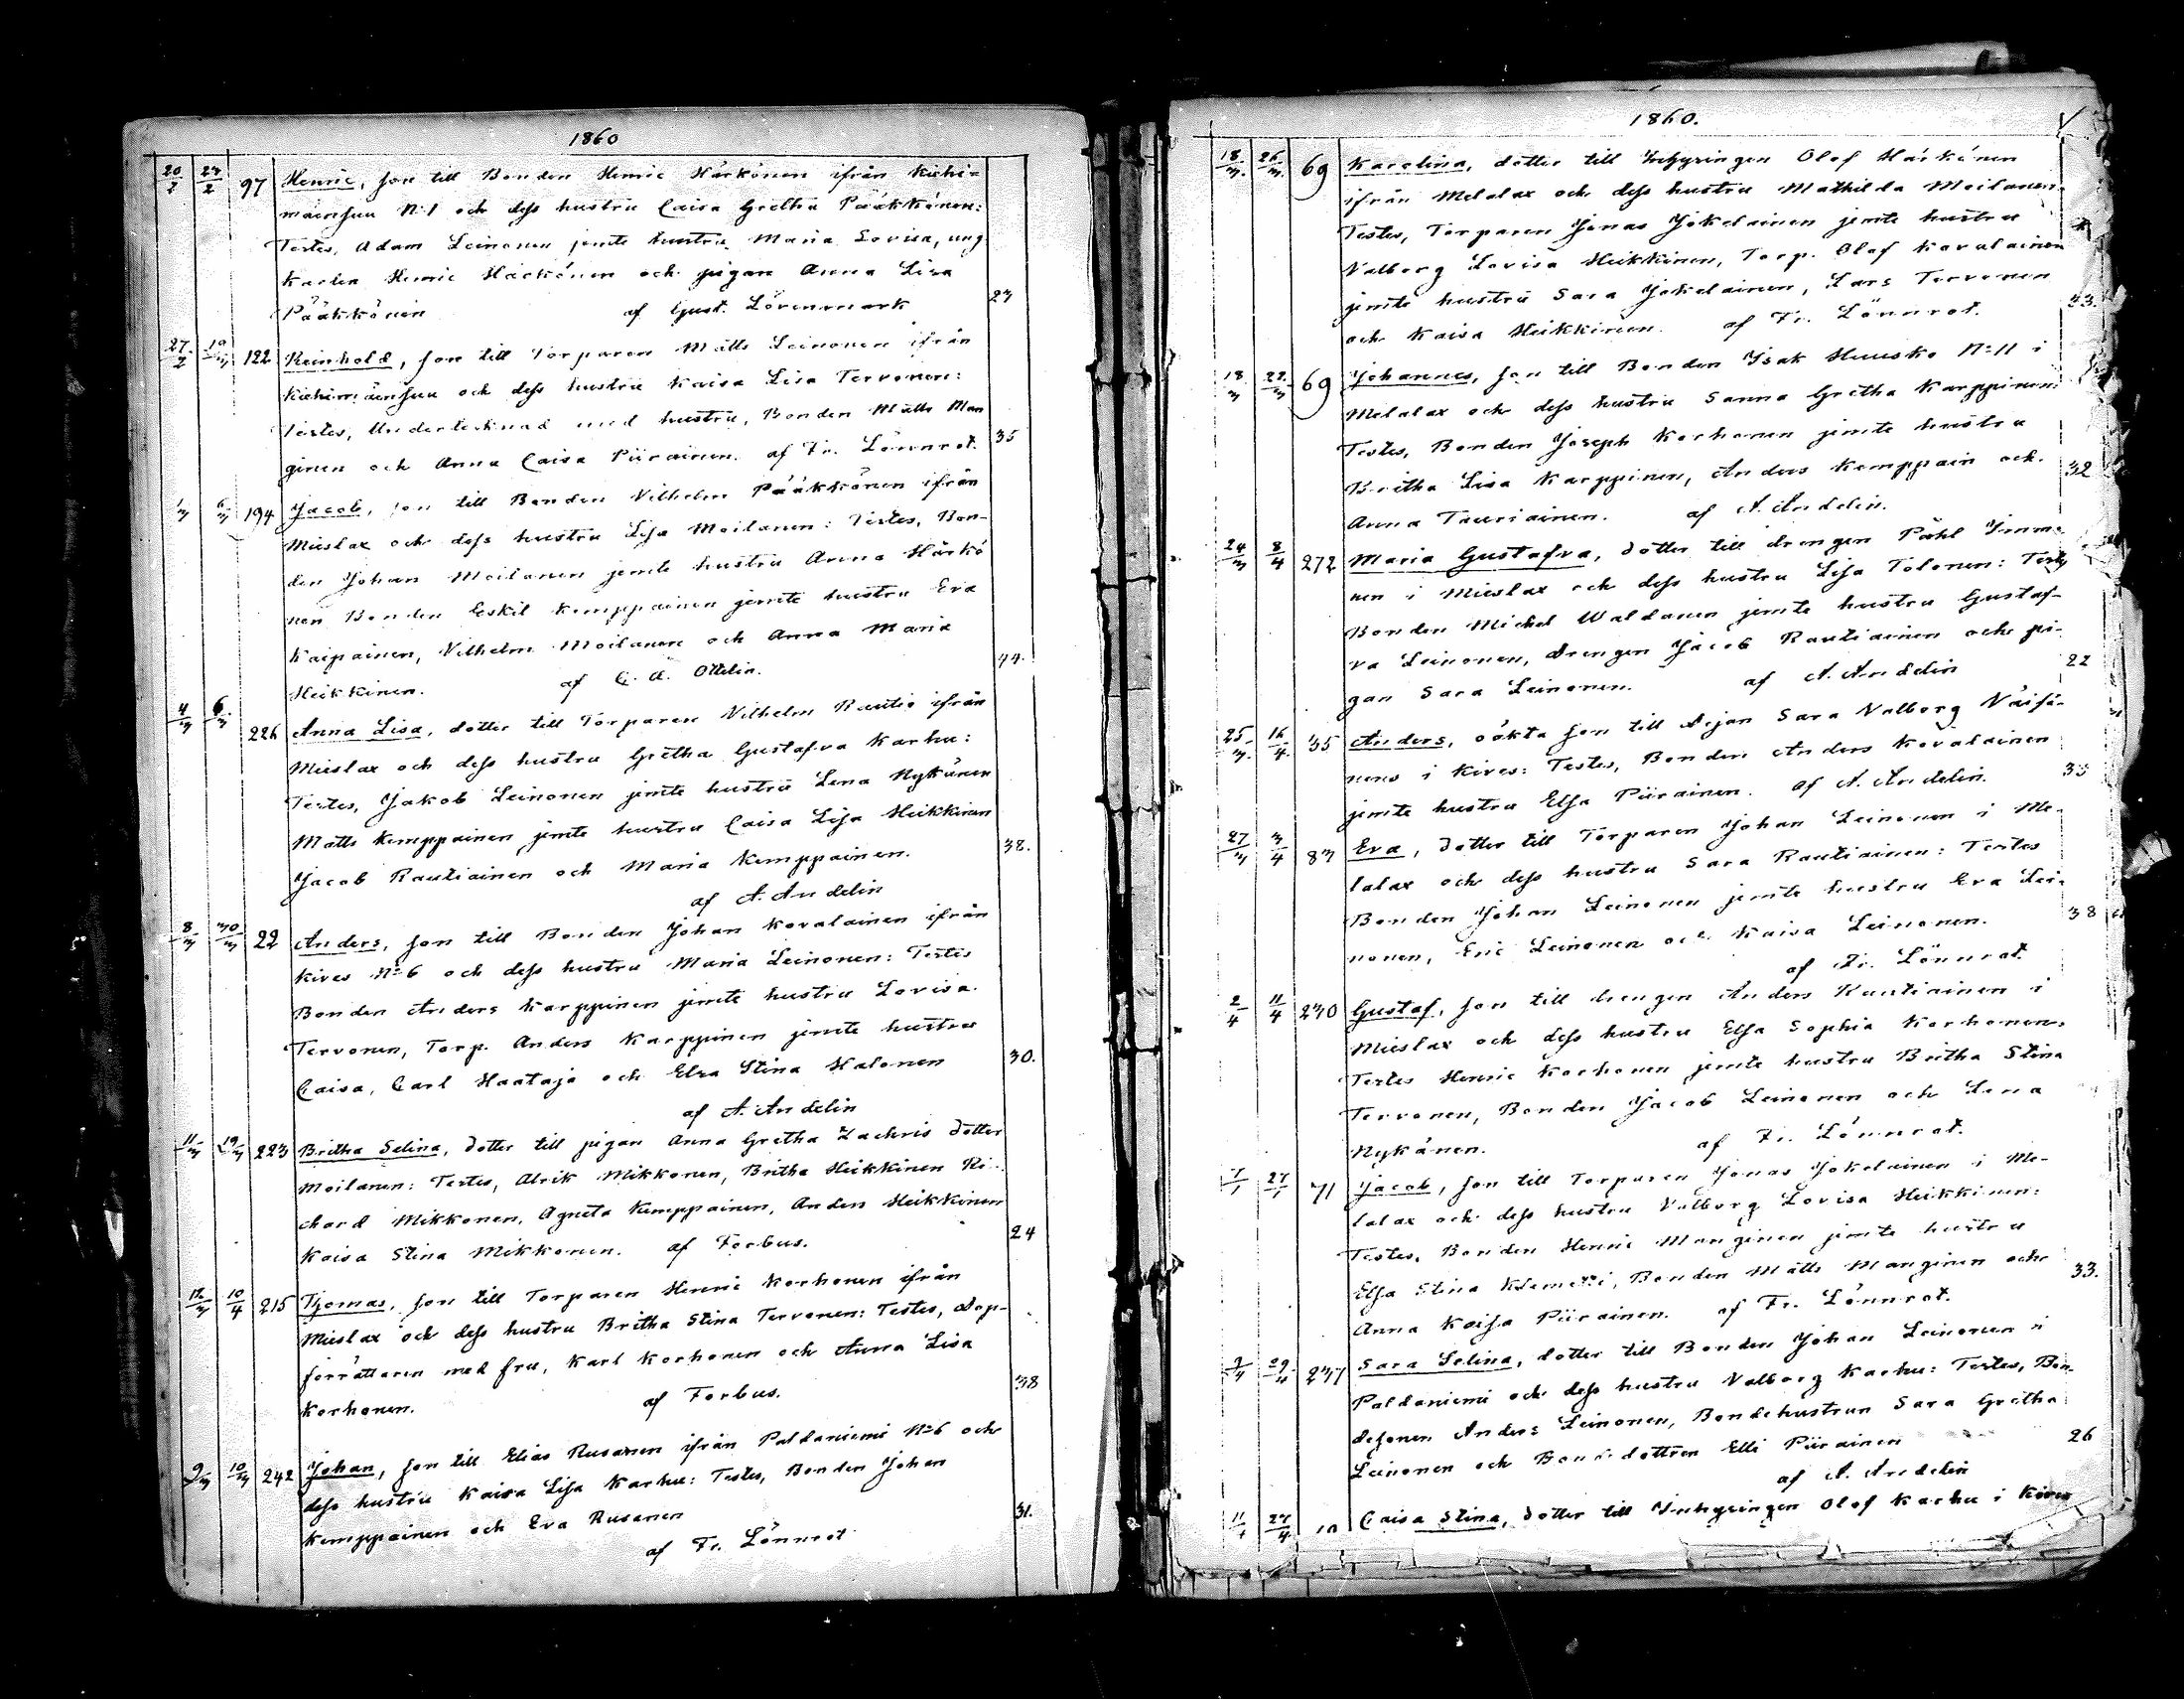 1860
20/2 27/2 97 Henric, son till Bonden Henric Härkönen ifrån Kiehi-
mäensuu N:1 och dess hustru Caisa Gretha Pääkkönen:
Testes, Adam Leinonen jemte hustru Maria Lovisa, ung
karlen Henric Häckönen och pigan Anna Lisa
Pääkkönen af Gust. Lörenmark 23
27/2 10/3 122 Reinhold, son till Torparen Matts Leinonen ifrån
Kiehimäensuu och dess hustru Kaisa Lisa Tervonen:
Testes, Undertecknad med hustru, Bonden Matts Man
ginen och Anna Caisa Piirainen. af Fr. Lönnrot. 35
1/3 6/3 194 Jacob, son till Bonden Vilhelm Pääkkönen ifrån
Mieslax och dess hustru Lisa Moilanen: Testes, Bon-
den Johan Moilanen jemte hustru Anna Härkö
nen Bonden Eskil Kemppainen jemte hustru Eva
Kaipainen, Vilhelm Moilanen och Anna Maria
Heikkinen. af C. A. Ottelin. 44.
4/3 6/3 226 Anna Lisa, dotter till Torparen Vilhelm Rautio ifrån
Mieslax och dess hustru Gretha Gustafva Karhu:
Testes, Jakob Leinonen jemte hustru Lena Nykänen
Matts Kemppainen jemte hustru Caisa Lisa Heikkinen
Jacob Rautiainen och Maria Kemppainen. 38.
af A. Andelin
8/3 30/3 22 Anders, son till Bonden Johan Kovalainen ifrån
Kives N:6 och dess hustru Maria Leinonen: Testes
Bonden Anders Karppinen jemte hustru Lovisa
Tervonen, Torp. Anders Karppinen jemte hustru
Caisa, Carl Haataja och Elsa Stina Halonen 30.
af A. Andelin
11/3 19/3 223 Britha Selina, dotter till pigan Anna Gretha Zachris dotter
Moilanen: Testes, Alrik Mikkonen, Britha Heikkinen Ri-
chard Mikkonen, Agneta Kemppainen, Anders Heikkinen
Kaisa Stina Mikkonen. af Forbus. 24
12/3 10/4 215 Thomas, son till Torparen Henric Korhonen ifrån
Mieslax och dess hustru Britha Stina Tervonen: Testes, dop-
förrättaren med fru, Karl Korhonen och Anna Lisa
Korhonen. af Forbus. 38
9/3 10/3 242 Johan, son till Elias Rusanen ifrån Paldaniemi N:6 och
dess hustru Kaisa Lisa Karhu: Testes, Bonden Johan
Kemppainen och Eva Rusanen 31.
af Fr. Lönnrot
1860.
18/3 26/3 69 Karolina, dotter till Inhysingen Olof Härkönen
ifrån Melalax och dess hustru Mathilda Moilanen.
Testes, Torparen Jonas Jokelainen jemte hustru
Valborg Lovisa Heikkinen, Torp. Olof Kovalainen
jemte hustru Sara Jokelainen, Lars Tervonen
och Kaisa Heikkinen. af Fr. Lönnrot. 33.
18/3 22/3 69 Johannes, son till Bonden Isak Huusko N:11 i
Melalax och dess hustru Sanna Gretha Karppinen:
Testes, Bonden Joseph Korhonen jemte hustru
Britha Lisa Karppinen, Anders Kemppain och 32
Anna Tauriainen. af A. Andelin.
24/3 8/4 272 Maria Gustafva, dotter till drengen Påhl Immo
nen i Mieslax och dess hustru Lisa Tolonen: Testes
Bonden Michel Waldanen jemte hustru Gustaf-
va Leinonen, drengen Jacob Rautiainen och pi-
gan Sara Leinonen. af A. Andelin 22
25/3 16/4 35 Anders, oäkta son till Arjan Sara Valborg Väisä-
nens i Kives: Testes, Bonden Anders Kovalainen
jemte hustru Elsa Piirainen. af A. Andelin. 35
27/3 3/4 83 Eva, dotter till Torparen Johan Leinonen i Me-
lalax och dess hustru Sara Rautiainen: Testes
Bonden Johan Leinonen jemte hustru Eva Lei-
nonen, Eric Leinonen och Kaisa Leinonen. 38
af Fr. Lönnrot.
2/4 11/4 230 Gustaf, son till drengen Anders Rautiainen i
Mieslax och dess hustru Elsa Sophia Korhonen.
Testes Henric Korhonen jemte hustru Britha Stina
Tervonen, Bonden Jacob Leinonen och Lena
Nykänen. af Fr. Lönnrot.
71 Jacob, son till Torparen Jonas Jokelainen i Me-
lalax och dess hustru Valborg Lovisa Heikkinen:
Testes, Bonden Henric Manginen jemte hustru
Elsa Stina Klemetti, Bonden Matts Manginen och
Anna Kaisa Piirainen. af Fr. Lönnrot. 33.
29/4 237 Sara Selina, dotter till Bonden Johan Leinonen i
Paldaniemi och dess hustru Valborg Karhu: Testes, Bon-
desonen Anders Leinonen, Bondehustrun Sara Gretha
Leinonen och Bondedottren Elli Piirainen 26
af A. Andelin
Caisa Stina, dotter till Inhysingen Olof Karhu i Kives